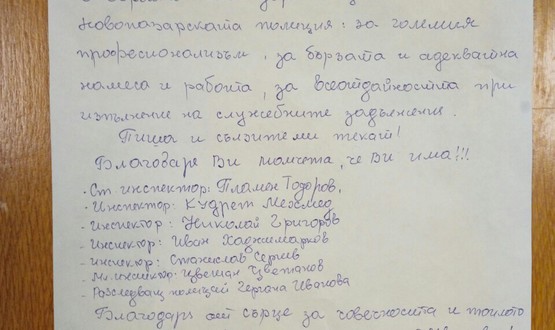 новопазарската полиция: за големия
професионализъм, за бързата и адекватна
намеса и работа, за всеотдайността при
изпълнение на служебните задължения.
Пиша и сълзите ми текат!
Благодаря Ви момчета, че Ви има!!!
· Ст инспектор: Пламен Тодоров,
· Инспектор: Кудрет Мехмед
- Инспектор: Николай Григоров
- Инспектор: Иван Хаджимарков
- инспектор: Станислав Сергиев
- Мл. инспектор: Цветан Цветанов
- Разследващ полицай Гергана Иванова
Благодаря от сърце за човечността и топлото